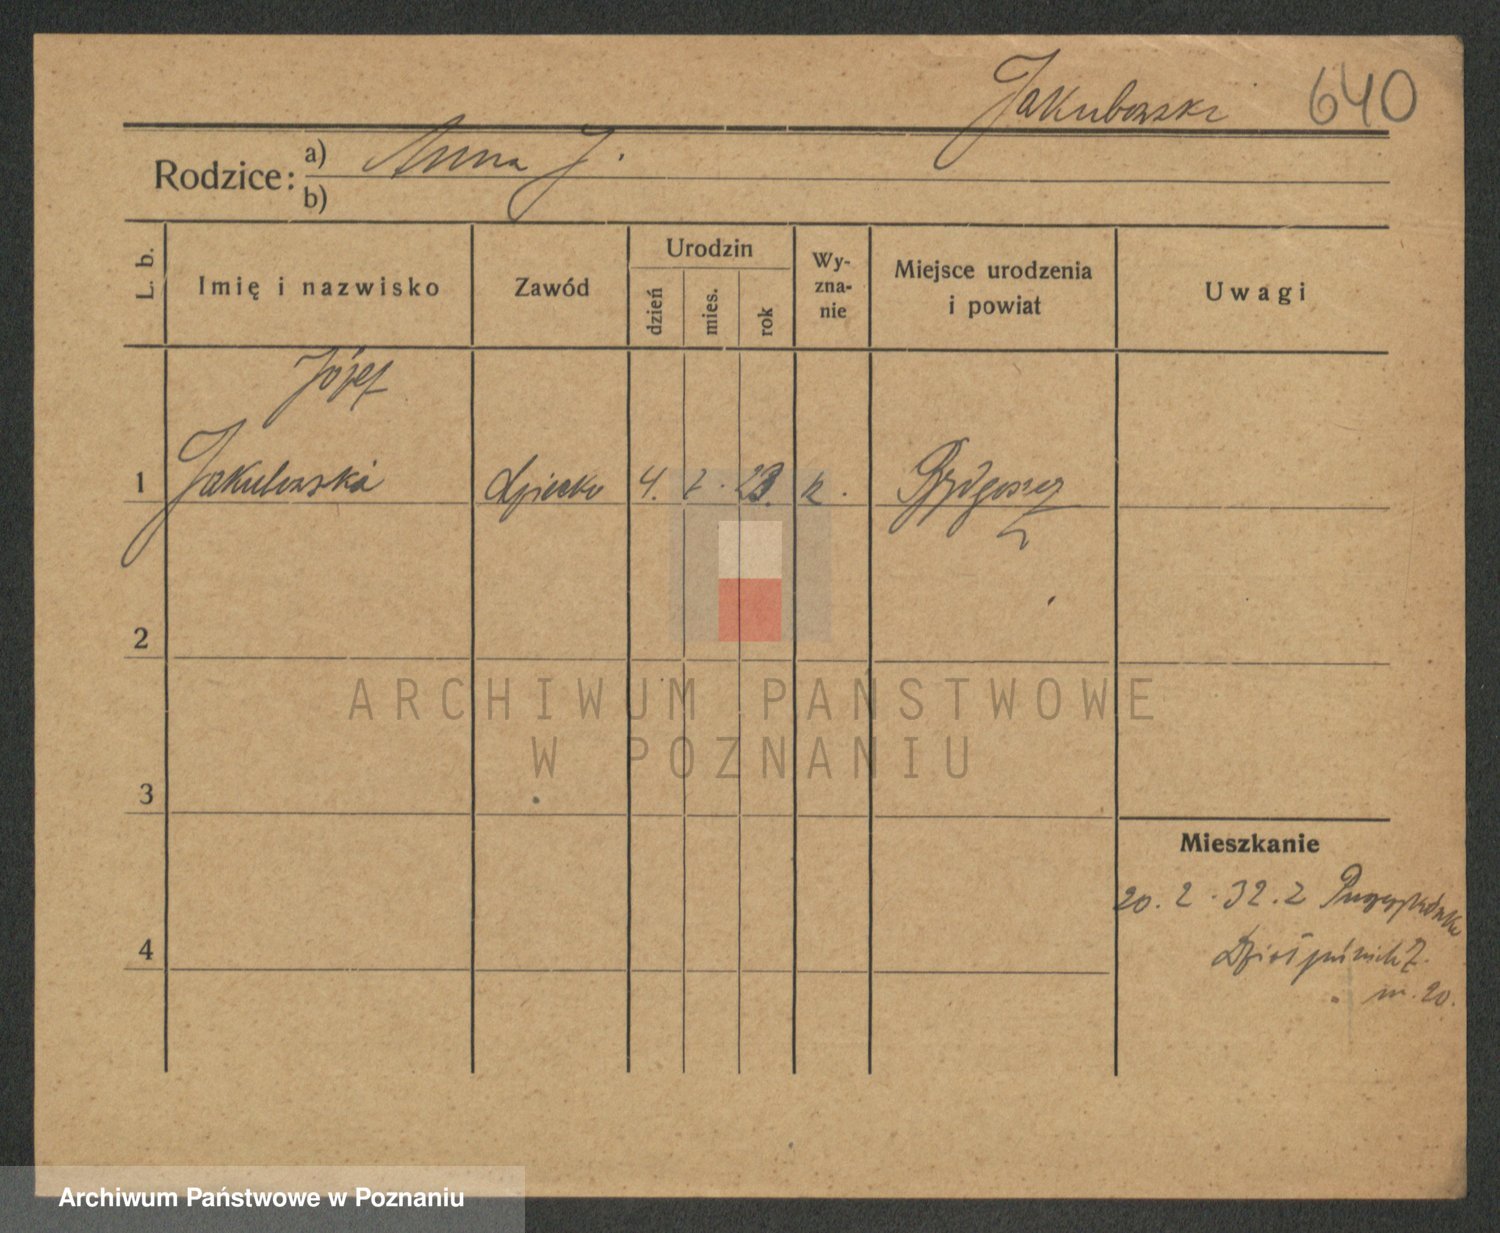 Jakubowski 640
Rodzice:
a) Anna J.
b)
L. b.
Imię i nazwisko
Zawód
Urodzin
dzień
mies.
rok
Wy-
zna-
nie
Miejsce urodzenia
i powiat
Uwagi
Józef
1 Jakubowski dziecko 4. 2. 23. k. Bydgoszcz
2
3
4
ARCHIWUM PAŃSTWOWE
W POZNANIU
Mieszkanie
20. 2. 32. z
m. 20.
Archiwum Państwowe w Poznaniu